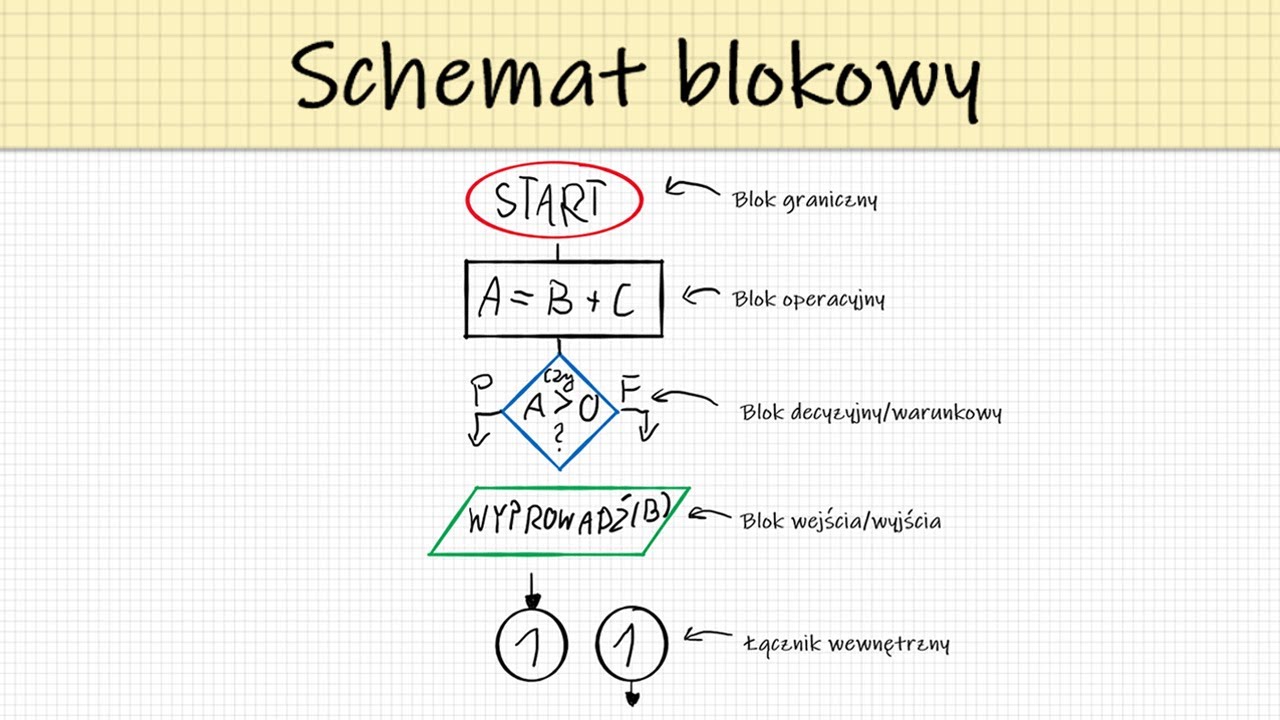 Schemat blokowy
START
Blok graniczny
A = B + C
Blok operacyjny
P
czy
A > 0
?
F
Blok decyzyjny/warunkowy
WYPROWADŹ(B)
Blok wejścia/wyjścia
1
1
Łącznik wewnętrzny